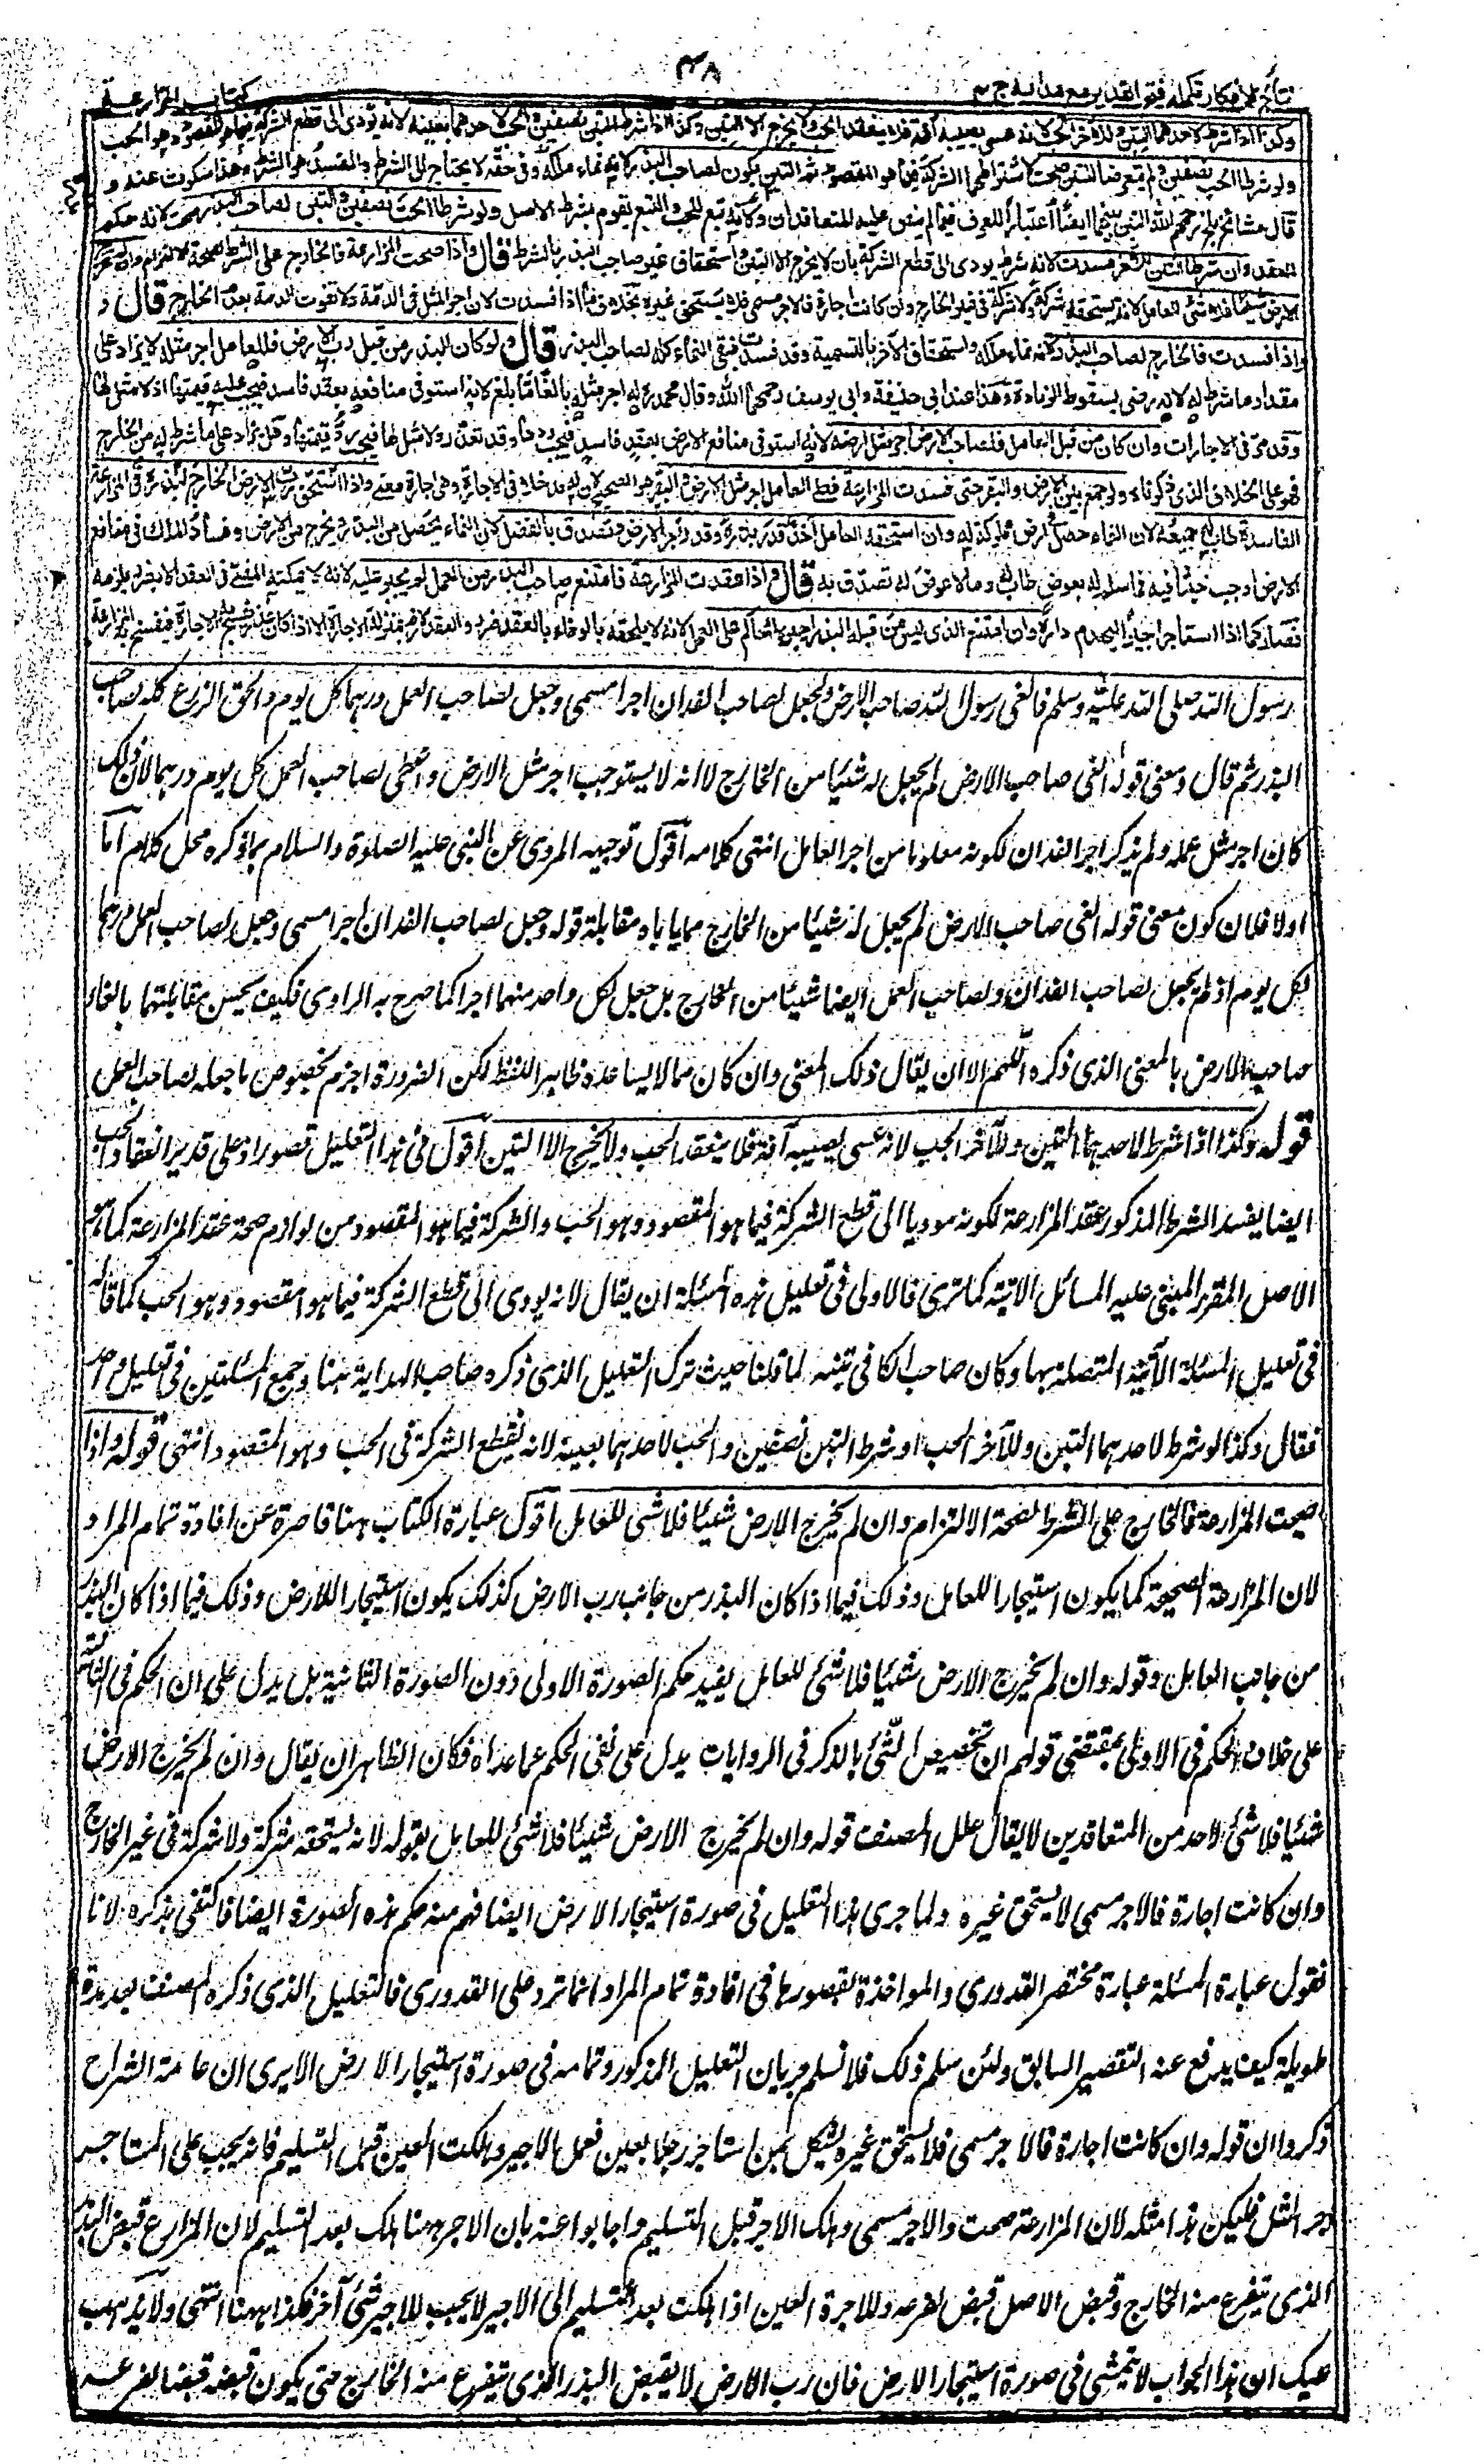 ٣٨
نتائج الافكار تكمله فتح القدير مع هدايه ج ٤ كتاب المزارعة
وكذا اذا شرط لاحدهما التبن وللآخر الحب لانه عسى يصيبه آفة فلا ينعقد الحب ولا يخرج الا التبن وكذا اذا شرط التبن نصفين والحب لاحدهما بعينه لانه يؤدى الى قطع الشركة فيما هو المقصود وهو الحب
ولو شرط الحب نصفين ولم يتعرضا للتبن صحت لاشتراطهما الشركة فيما هو المقصود ثم التبن يكون لصاحب البذر لانه نماء ملكه وفى حقه لا يحتاج الى الشرط والمفسد هو الشرط وهذا سكوت عنه و
قال مشائخ بلخ رحمهم الله التبن بينهما ايضا اعتبارا للعرف فيما لم ينص عليه المتعاقدان ولانه تبع للحب والتبع يقوم بشرط الاصل ولو شرطا الحب نصفين والتبن لصاحب البذر صحت لانه حكم
العقد وان شرطا التبن للآخر فسدت لانه شرط يودى الى قطع الشركة بان لا يخرج الا التبن واستحقاق غير صاحب البذر بالشرط قال واذا صحت المزارعة فالخارج على الشرط لصحة الالتزام وان لم تخرج
الارض شيئا فلا شئ للعامل لانه يستحقه شركة ولا شركة فى غير الخارج وان كانت اجارة فالاجر مسمى فلا يستحق غيره بخلاف ما اذا فسدت لان اجر المثل فى الذمة ولا تفوت الذمة بعدم الخارج قال و
واذا فسدت فالخارج لصاحب البذر لانه نماء ملكه واستحقاق الآخر بالتسمية وقد فسدت فبقى النماء كله لصاحب البذر قال ولو كان البذر من قبل رب الارض فللعامل اجر مثله لا يزاد على
مقدار ما شرط له لانه رضى بسقوط الزيادة وهذا عند ابى حنيفة وابى يوسف رحمهما الله وقال محمد رح له اجر مثله بالغا ما بلغ لانه استوفى منافعه بعقد فاسد فيجب عليه قيمتها اذ لا مثل لها
وقد مر فى الاجارات وان كان من قبل العامل فلصاحب الارض اجر مثل ارضه لانه استوفى منافع الارض بعقد فاسد فيجب ردها وقد تعذر ولا مثل لها فيجب رد قيمتها وهل يزاد على ما شرط له من الخارج
فهو على الخلاف الذى ذكرناه ولو جمع بين الارض والبقر حتى فسدت المزارعة فعلى العامل اجر مثل الارض والبقر هو الصحيح لان له مدخلا فى الاجارة وهى اجارة معنى واذا استحق رب الارض الخارج لبذره فى المزارعة
الفاسدة طاب له جميعه لان النماء حصل فى ارض مملوكة له وان استحقه العامل اخذ قدر بذره وقدر اجر الارض وتصدق بالفضل لان النماء يحصل من البذر ويخرج من الارض وفساد الملك فى منافع
الارض اوجب خبثا فيه فما سلم له بعوض طاب له وما لا عوض له تصدق به قال واذا عقدت المزارعة فامتنع صاحب البذر من العمل لم يجبر عليه لانه لا يمكنه المضى فى العقد الا بضرر يلزمه
فصار كما اذا استاجر اجيرا ليهدم داره وان امتنع الذى ليس من قبله البذر اجبره الحاكم على العمل لانه لا يلحقه بالوفاء بالعقد ضرر والعقد لازم بمنزلة الاجارة الا اذا كان عذر يفسخ به الاجارة فيفسخ به المزارعة
رسول الله صلى الله عليه وسلم فالغى رسول الله صاحب الارض ولم يجعل لصاحب الفدان اجرا مسمى وجعل لصاحب العمل درهما كل يوم والحق الزرع كله لصاحب
البذر ثم قال ومعنى قوله الغى صاحب الارض لم يجعل له شيئا من الخارج لا انه لا يستوجب اجر مثل الارض واعطى لصاحب العمل كل يوم درهما لان ذلك
كان اجر مثل عمله ولم يذكر اجر الفدان لكونه معلوما من اجر العامل انتهى كلامه اقول توجيه المروى عن النبى عليه الصلوة والسلام بما ذكره محل كلام اما
اولا فلان كون معنى قوله الغى صاحب الارض لم يجعل له شيئا من الخارج مما يأباه مقابلة قوله وجعل لصاحب الفدان اجرا مسمى وجعل لصاحب العمل درهما
لكل يوم اذ لم يجعل لصاحب الفدان ولصاحب العمل ايضا شيئا من الخارج بل جعل لكل واحد منهما اجرا كما صرح به الراوى فكيف يحسن مقابلتهما بالغاء
صاحب الارض بالمعنى الذى ذكره اللهم الا ان يقال ذلك المعنى وان كان مما لا يساعده ظاهر اللفظ لكن الضرورة اجزم بخصوص ما جعله لصاحب العمل
قوله وكذا اذا شرط لاحدهما التبن وللآخر الحب لانه عسى يصيبه آفة فلا ينعقد الحب ولا يخرج الا التبن اقول فى هذا التعليل قصور اذ على تقدير انعقاد الحب
ايضا يفسد الشرط المذكور عقد المزارعة لكونه موديا الى قطع الشركة فيما هو المقصود وهو الحب والشركة فيما هو المقصود من لوازم صحة عقد المزارعة كما هو
الاصل المقرر المبنى عليه المسائل الاتية كما ترى فالاولى فى تعليل هذه المسئلة ان يقال لانه يودى الى قطع الشركة فيما هو المقصود وهو الحب كما قاله
فى تعليل المسئلة الآتية المتصلة بها وكان صاحب الكافى تنبه لما قلنا حيث ترك التعليل الذى ذكره صاحب الهداية ههنا وجمع المسئلتين فى تعليل واحد
فقال وكذا لو شرط لاحدهما التبن وللآخر الحب او شرط التبن نصفين والحب لاحدهما بعينه لانه يقطع الشركة فى الحب وهو المقصود انتهى قوله واذا
صحت المزارعة فالخارج على الشرط لصحة الالتزام وان لم يخرج الارض شيئا فلا شئ للعامل اقول عبارة الكتاب ههنا قاصرة عن افادة تمام المراد
لان المزارعة الصحيحة كما يكون استيجارا للعامل وذلك فيما اذا كان البذر من جانب رب الارض كذلك يكون استيجارا للارض وذلك فيما اذا كان البذر
من جانب العامل وقوله وان لم يخرج الارض شيئا فلا شئ للعامل يفيد حكم الصورة الاولى دون الصورة الثانية بل يدل على ان الحكم فى الثانية
على خلاف الحكم فى الاولى بمقتضى قولهم ان تخصيص الشئ بالذكر فى الروايات يدل على نفى الحكم عما عداه فكان الظاهر ان يقال وان لم يخرج الارض
شيئا فلا شئ لاحد من المتعاقدين لا يقال علل المصنف قوله وان لم يخرج الارض شيئا فلا شئ للعامل بقوله لانه يستحقه شركة ولا شركة فى غير الخارج
وان كانت اجارة فالاجر مسمى لا يستحق غيره ولما جرى هذا التعليل فى صورة استيجار الارض ايضا فهم منه حكم هذه الصورة ايضا فاكتفى بذكره لانا
نقول عبارة المسئلة عبارة مختصر القدورى والمواخذة بقصورها فى افادة تمام المراد انما ترد على القدورى فالتعليل الذى ذكره المصنف بعد مدة
طويلة كيف يدفع عنه التقصير السابق ولئن سلم ذلك فلا نسلم جريان التعليل المذكور وتمامه فى صورة استيجار الارض الا يرى ان عامة الشراح
ذكروا ان قوله وان كانت اجارة فالاجر مسمى فلا يستحق غيره يشكل بمن استاجر رجلا بعين فعمل الاجير وهلكت العين قبل التسليم فانه يجب على المستاجر
اجر المثل فليكن هذا مثله لان المزارعة صحت والاجر مسمى وهلك الاجر قبل التسليم واجابوا عنه بان الاجر ههنا هلك بعد التسليم لان المزارع قبض البذر
الذى يتفرع منه الخارج وقبض الاصل قبض لفرعه والاجرة العين اذا هلكت بعد التسليم الى الاجير لا يجب للاجير شئ آخر فكذا ههنا انتهى ولا يذهب
عليك ان هذا الجواب لا يتمشى فى صورة استيجار الارض فان رب الارض لا يقبض البذر الذى يتفرع منه الخارج حتى يكون قبضه قبضا لفرعه